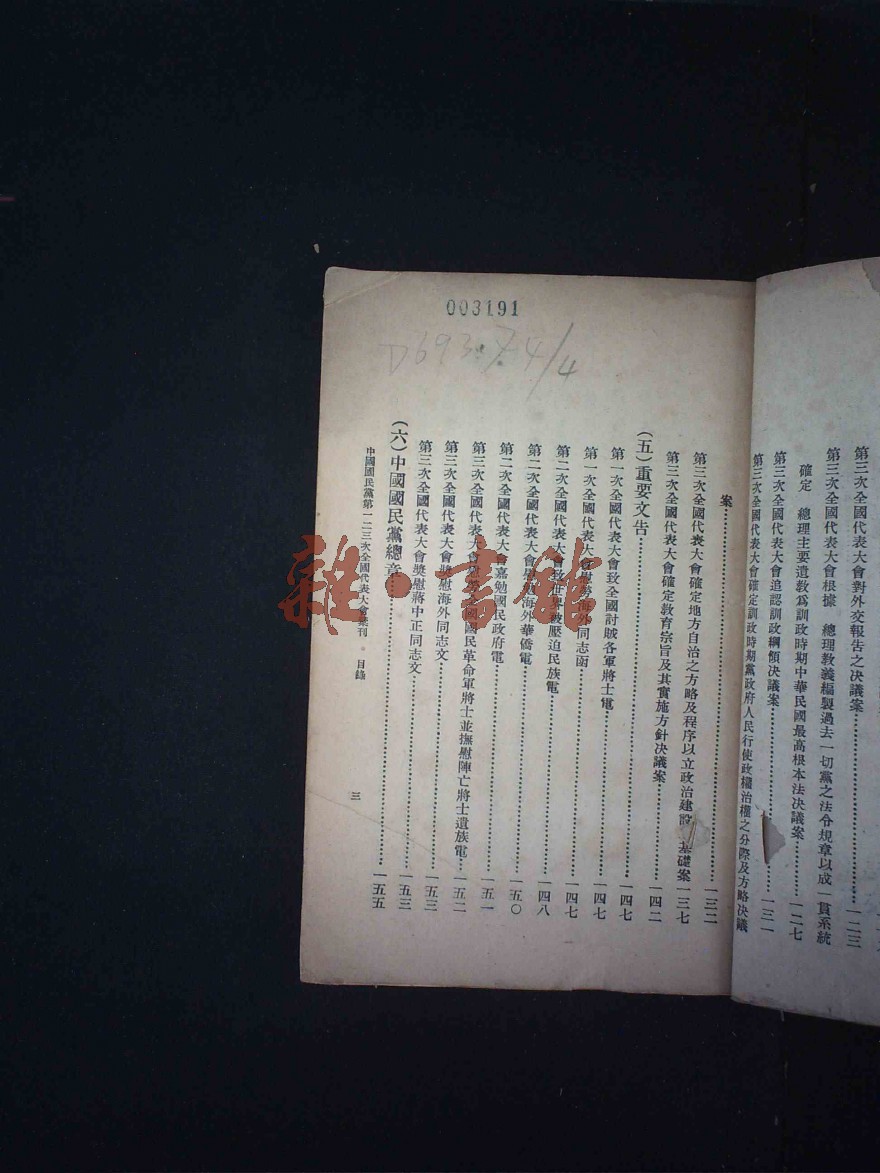 第三次全國代表大會對外交報告之決議案…一二三
第三次全國代表大會根據 總理教義編製過去一切黨之法令規章以成一貫系統
確定 總理主要遺教為訓政時期中華民國最高根本法決議案…一二七
第三次全國代表大會追認訓政綱領決議案…一三一
第三次全國代表大會確定訓政時期黨政府人民行使政權治權之分際及方略決議
003191
D693.74/4
案…一三二
第三次全國代表大會確定地方自治之方略及程序以立政治建設 基礎案一三七
第三次全國代表大會確定教育宗旨及其實施方針決議案…一四二
(五)重要文告…一四七
第一次全國代表大會致全國討賊各軍將士電…一四七
第一次全國代表大會慰勞海外同志函…一四七
第二次全國代表大會致世界被壓迫民族電…一四七
第二次全國代表大會慰勞海外華僑電…一四八
第二次全國代表大會嘉勉國民政府電…一五〇
第三次全國代表大會 國民革命軍將士並撫慰陣亡將士遺族電…一五一
第三次全國代表大會獎慰海外同志文…一五二
第三次全國代表大會獎慰蔣中正同志文…一五三
(六)中國國民黨總章…一五五
中國國民黨第一二三次全國代表大會彙刊 目錄
三
雜·書館